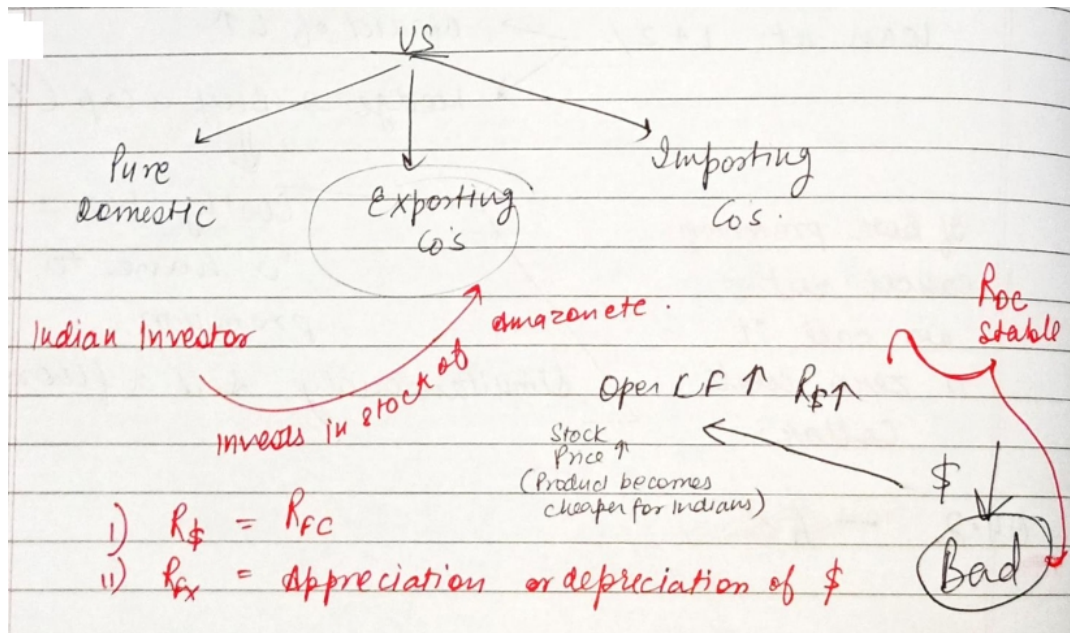 US
Pure
Domestic
Exporting
Co's
Importing
Co's.
Indian Investor
Invests in stock of
Amazon etc.
R_DC
Stable
Oper CF ↑ R$↑
Stock
Price ↑
(Product becomes
cheaper for Indians)
$ ↓
Bad
i) R$ = R_FC
ii) R_FX = Appreciation or depreciation of $